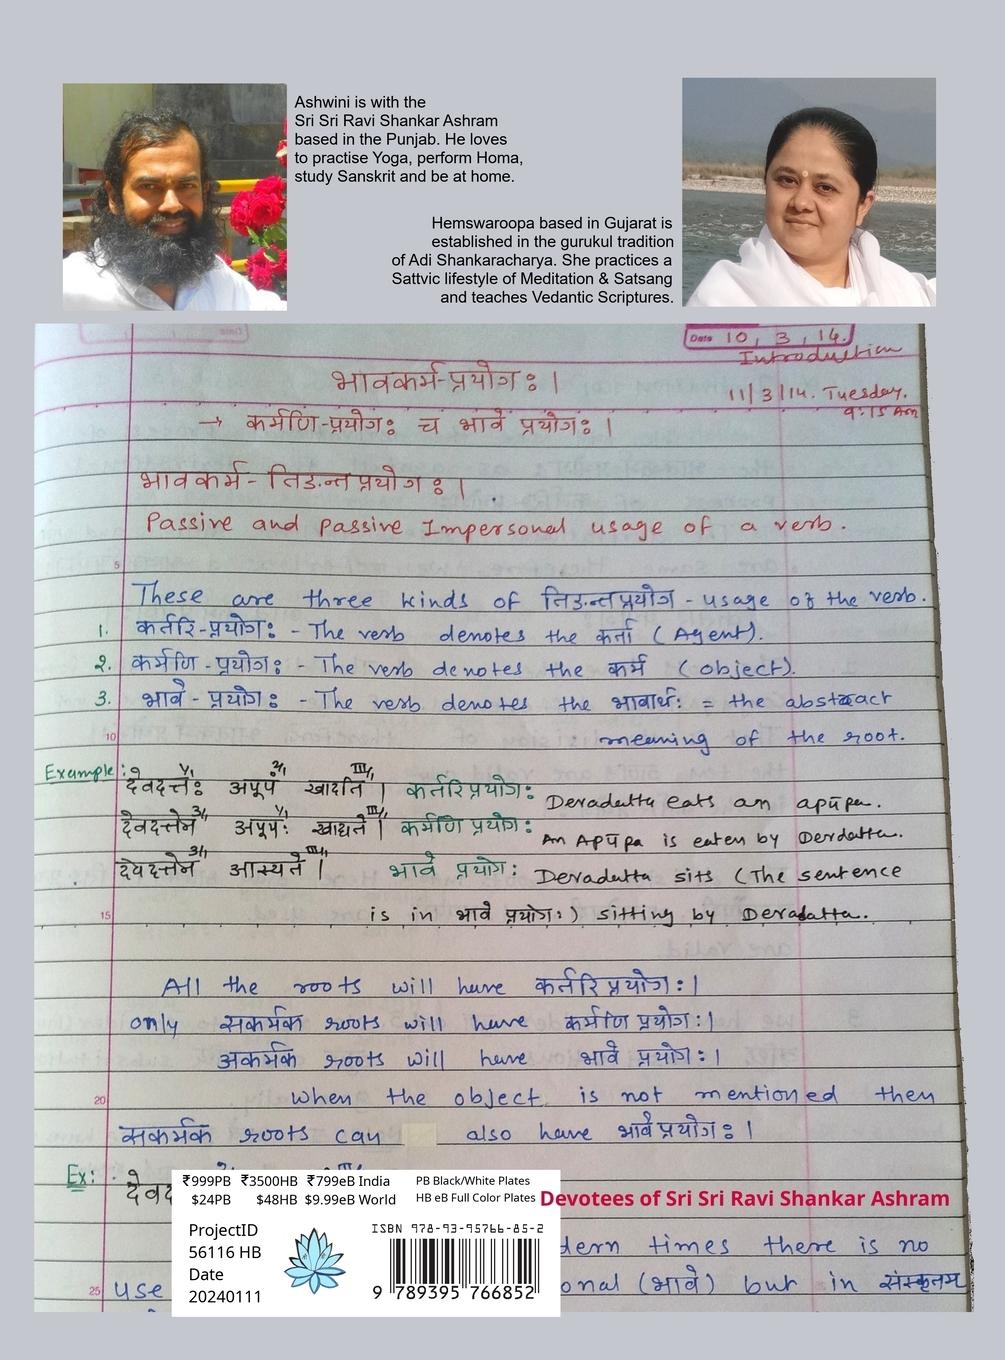 Ashwini is with the
Sri Sri Ravi Shankar Ashram
based in the Punjab. He loves
to practise Yoga, perform Homa,
study Sanskrit and be at home.
Hemswaroopa based in Gujarat is
established in the gurukul tradition
of Adi Shankaracharya. She practices a
Sattvic lifestyle of Meditation & Satsang
and teaches Vedantic Scriptures.
Date 10, 3, 14.
Introduction
भावकर्म-प्रयोगः ।
11/3/14. Tuesday.
9:15 Am
→ कर्मणि-प्रयोगः च भावे प्रयोगः ।
भावकर्म- तिङन्तप्रयोगः ।
Passive and passive Impersonal usage of a verb.
5
These are three kinds of तिङन्तप्रयोग - usage of the verb.
1. कर्तरि-प्रयोगः - The verb denotes the कर्ता (Agent).
2. कर्मणि-प्रयोगः - The verb denotes the कर्म (object).
3. भावे-प्रयोगः - The verb denotes the भावार्थः = the abstract
10 meaning of the root.
Example:
देवदत्तः १/1 अपूपं 2/1 खादति III/1 । कर्तरिप्रयोगः Devadatta eats an apūpa.
देवदत्तेन 3/1 अपूपः १/1 खाद्यते III/1 । कर्मणि प्रयोगः An Apūpa is eaten by Devdatta.
देवदत्तेन 3/1 आस्यते III/1 । भावे प्रयोगः Devadatta sits (The sentence
15 is in भावे प्रयोगः) sitting by Devadatta.
All the roots will have कर्तरिप्रयोगः ।
only सकर्मक roots will have कर्मणि प्रयोगः ।
अकर्मक roots will have भावे प्रयोगः ।
20 when the object is not mentioned then
सकर्मक roots can also have भावेप्रयोगः ।
Ex:
देवद
₹999PB ₹3500HB ₹799eB India
$24PB $48HB $9.99eB World
PB Black/White Plates
HB eB Full Color Plates
Devotees of Sri Sri Ravi Shankar Ashram
ProjectID
56116 HB
Date
20240111
ISBN 978-93-95766-85-2
9 789395 766852
dern times there is no
25 use
onal (भावे) but in संस्कृतम्